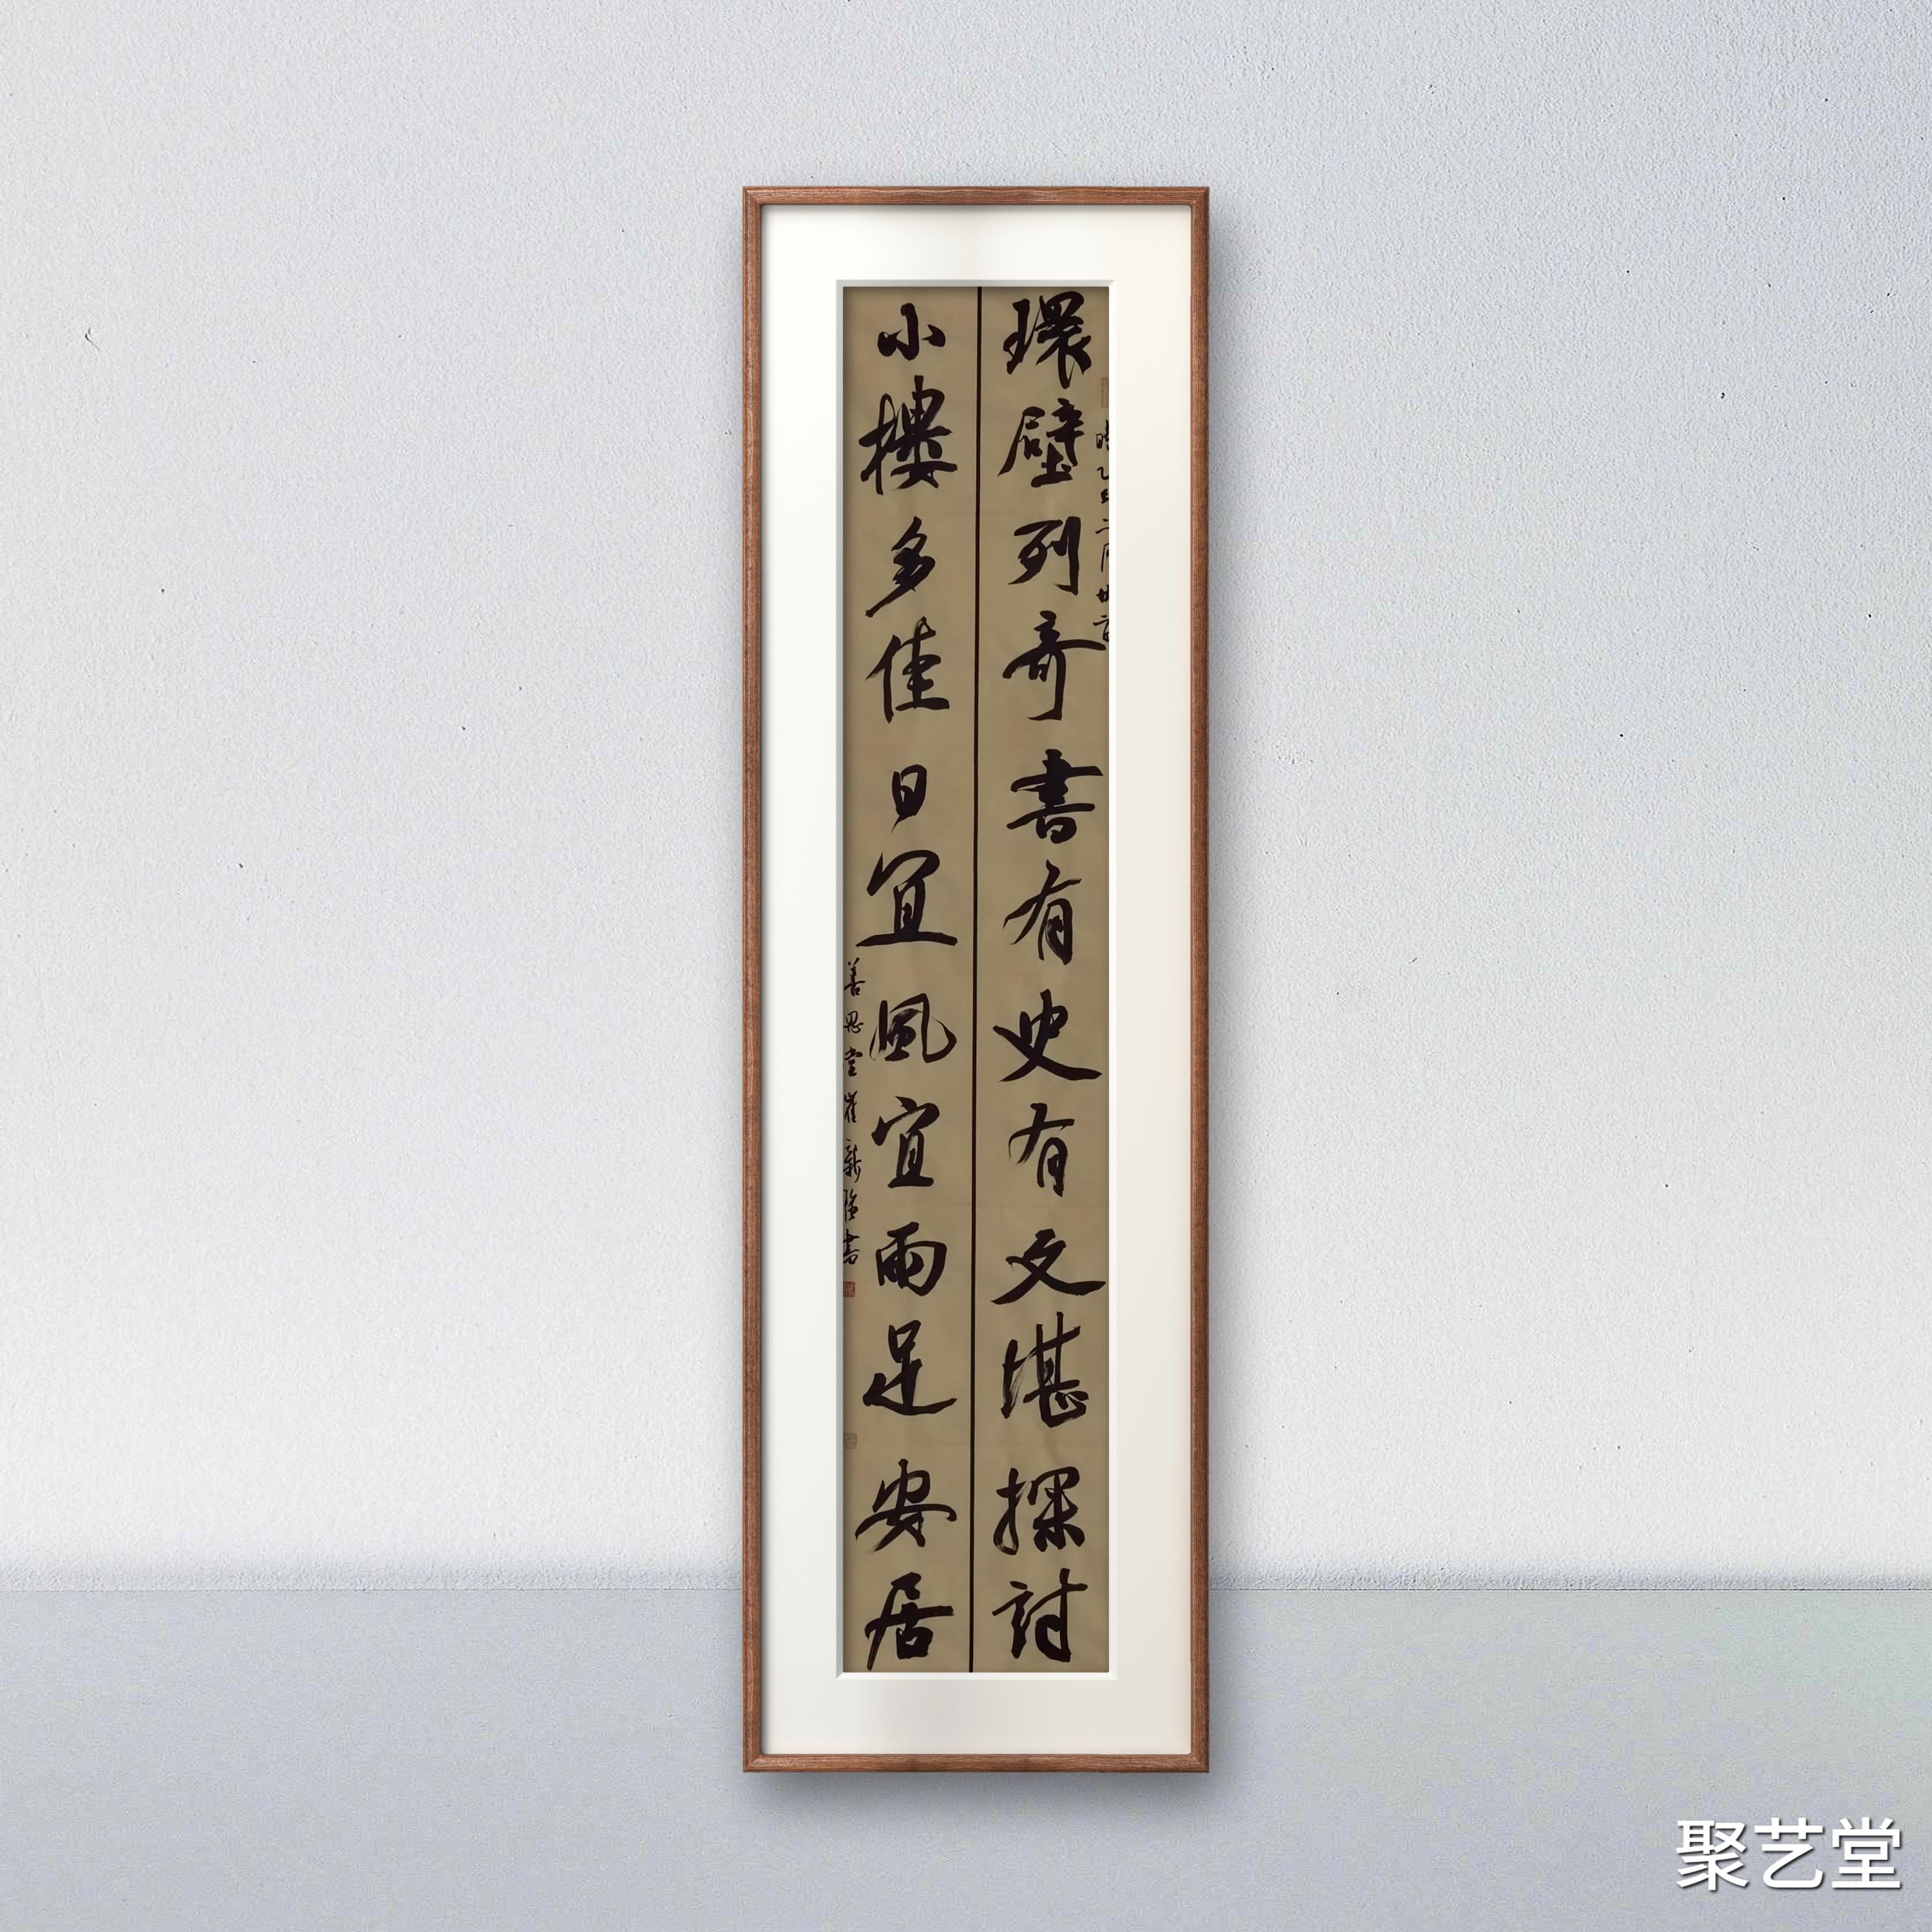 環壁列奇書有史有文堪探討
小樓多佳日宜風宜雨足安居
善思堂崔新強書
聚艺堂